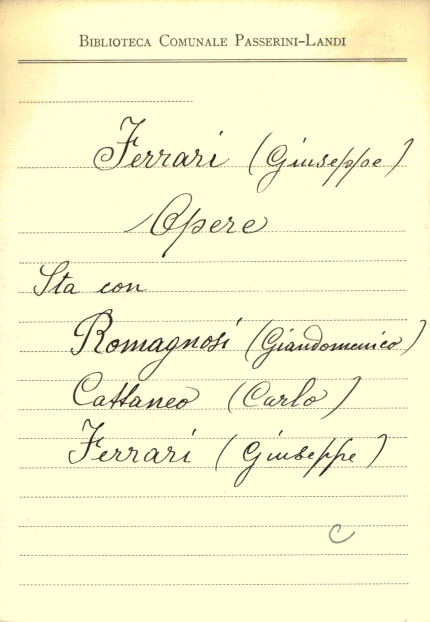 BIBLIOTECA COMUNALE PASSERINI-LANDI
Ferrari (Giuseppe)
Opere
Sta con
Romagnosi (Giandomenico)
Cattaneo (Carlo)
Ferrari (Giuseppe)
C